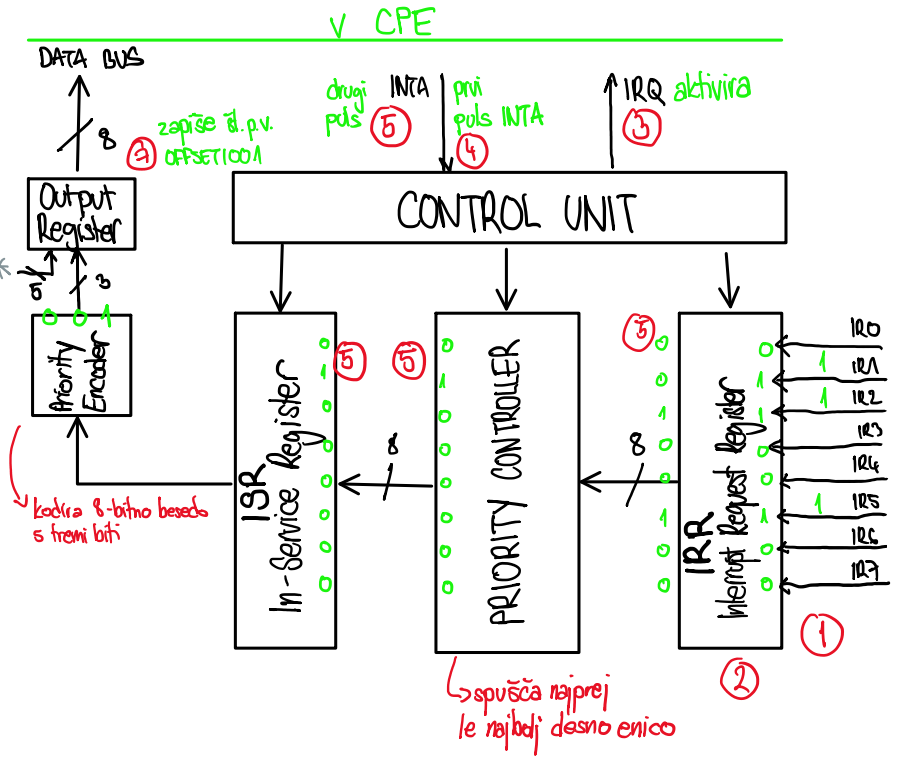 V CPE
DATA BUS
8
7
zapiše št. p.v.
OFFSET|001
Output
Register
5
3
0 0 1
Priority
Encoder
kodira 8-bitno besedo
s tremi biti
drugi
puls
INTA
5
prvi
puls INTA
4
IRQ aktivira
3
CONTROL UNIT
ISR
In-Service Register
0
1
0
0
0
0
0
0
5
8
5
PRIORITY CONTROLLER
0
1
0
0
0
0
0
0
spušča najprej
le najbolj desno enico
8
5
0
0
1
0
0
1
0
0
IRR
Interrupt Request Register
0
1
1
0
0
1
0
0
IR0
1 IR1
1 IR2
IR3
IR4
1 IR5
IR6
IR7
1
2